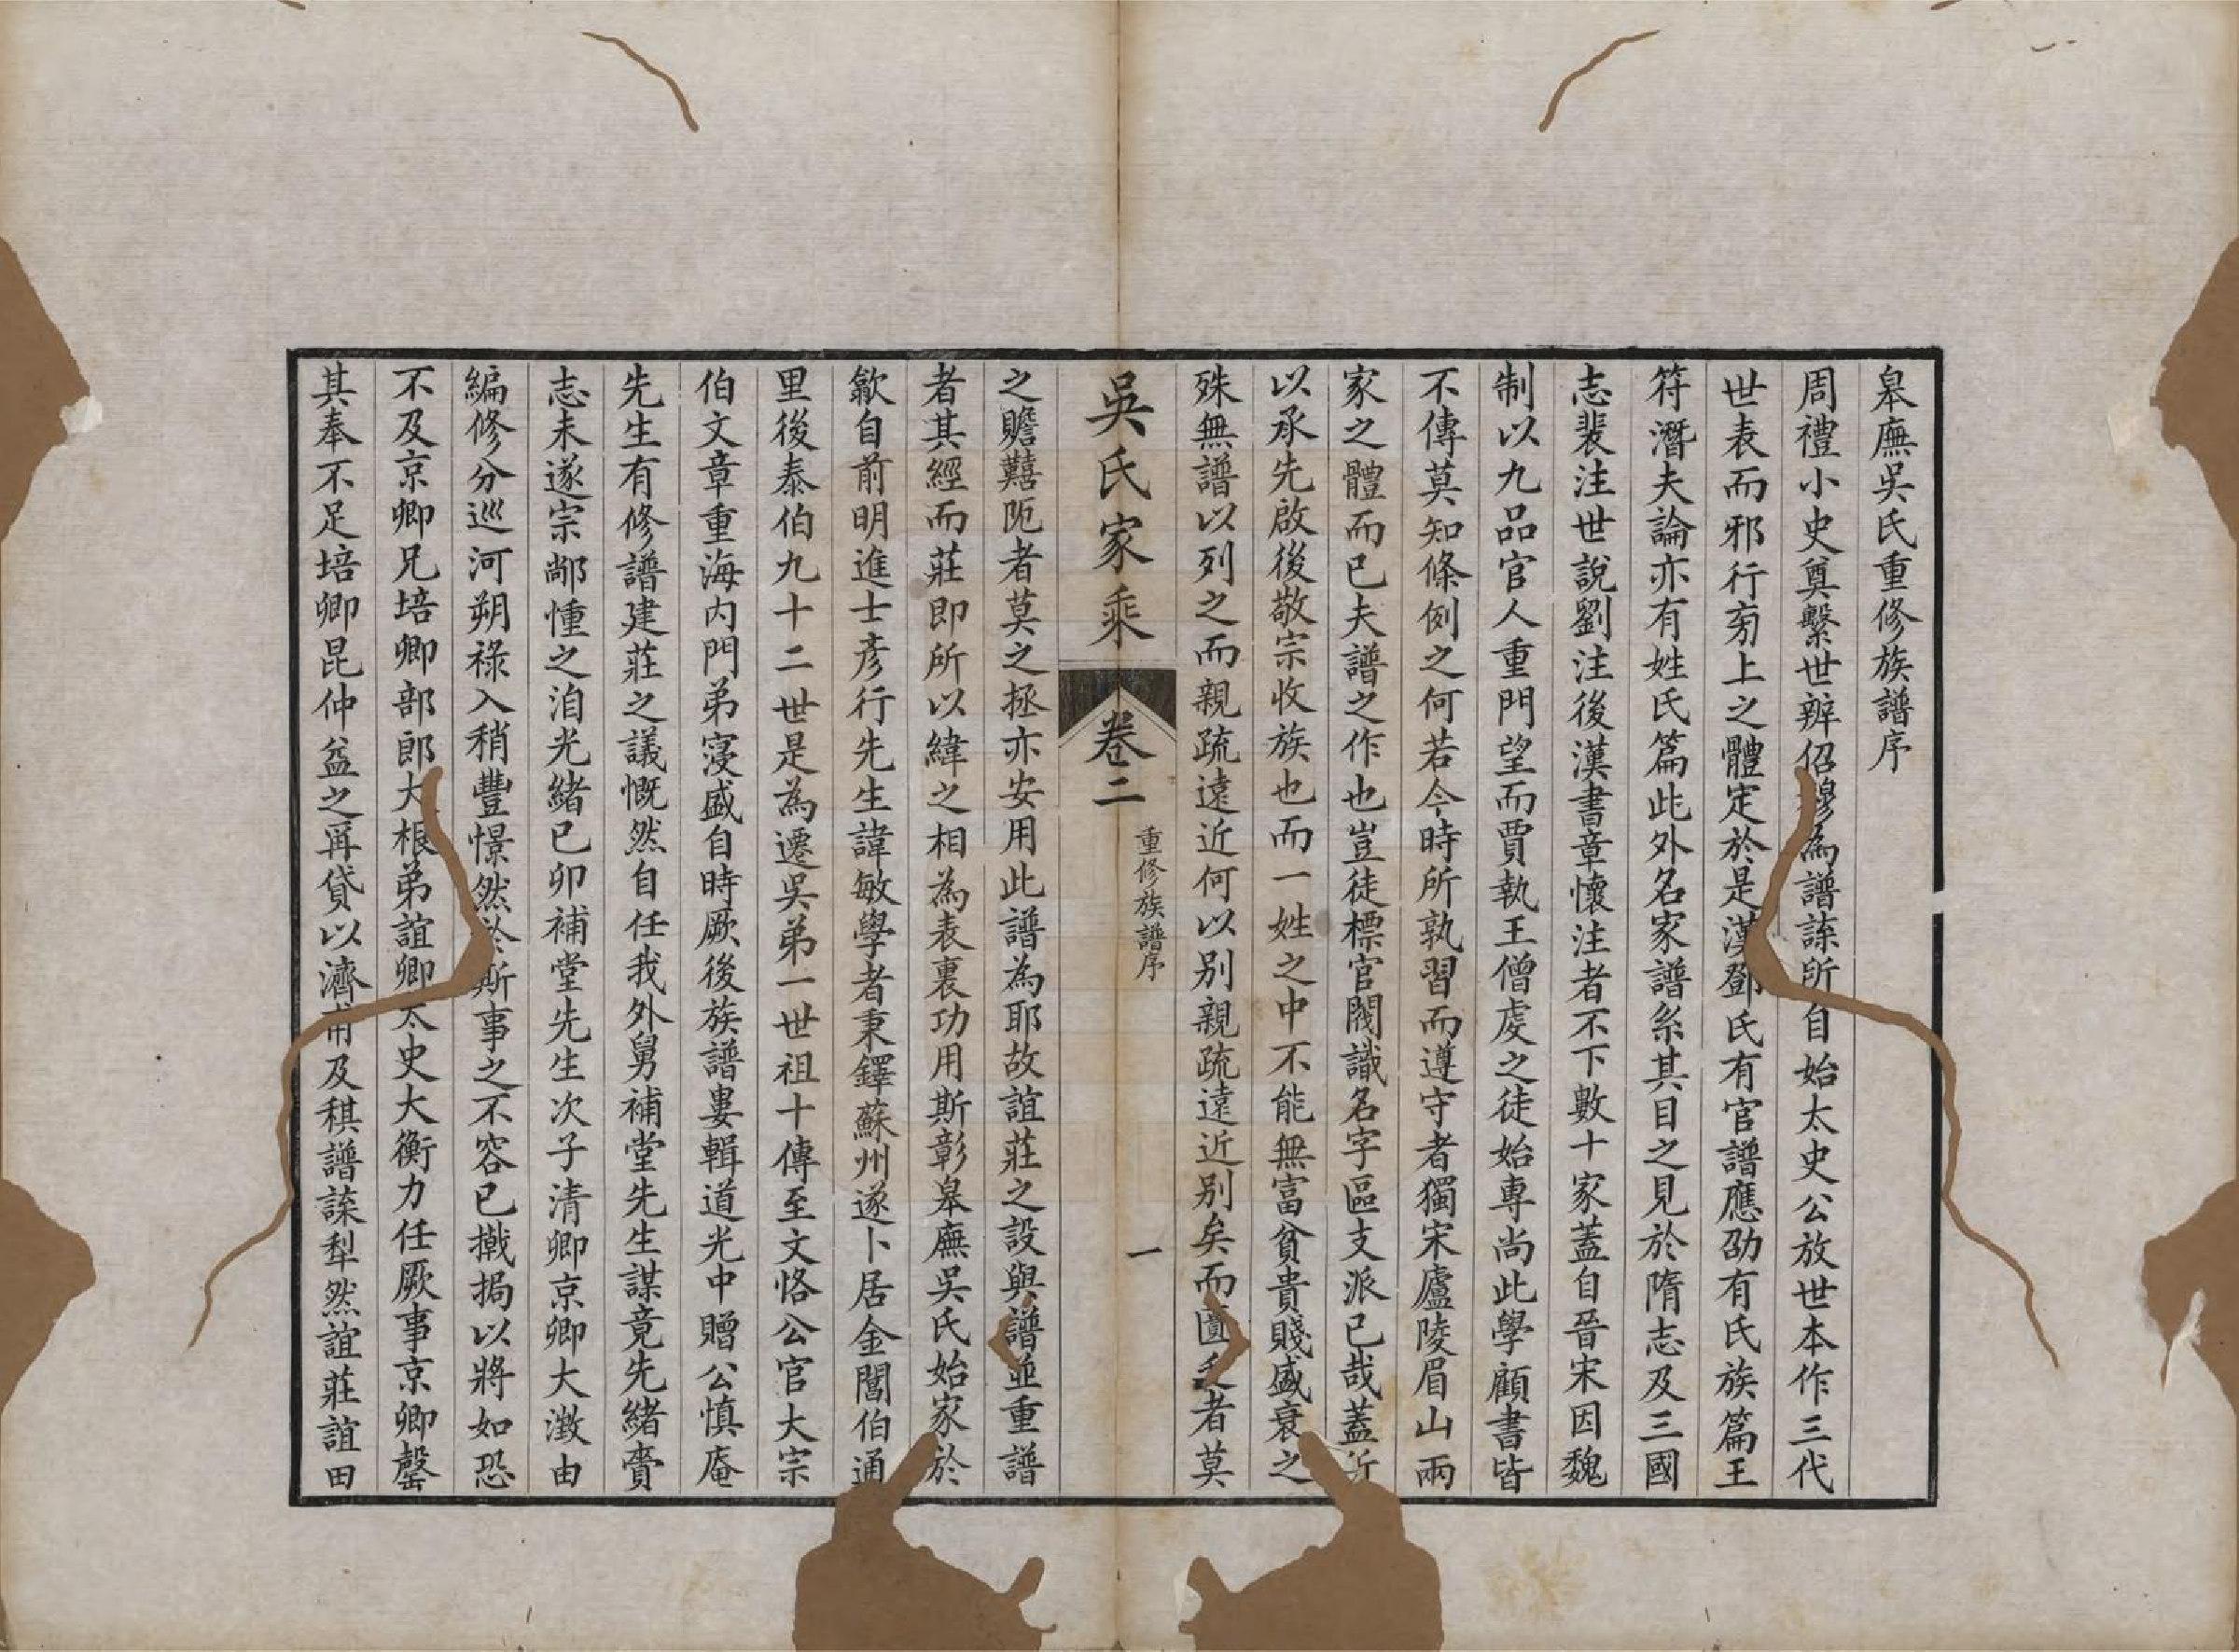 皋廡吳氏重修族譜序
周禮小史奠繫世辨佋穆為譜諜所自始太史公放世本作三代
世表而邪行㫄上之體定於是漢鄧氏有官譜應劭有氏族篇王
符潛夫論亦有姓氏篇此外名家譜系其目之見於隋志及三國
志裴注世說劉注後漢書章懷注者不下數十家蓋自晉宋因魏
制以九品官人重門望而賈執王僧虔之徒始專尚此學顧書皆
不傳莫知條例之何若今時所孰習而遵守者獨宋廬陵眉山兩
家之體而已夫譜之作也豈徒標官閥識名字區支派已哉蓋所
以承先啟後敬宗收族也而一姓之中不能無富貧貴賤盛衰之
殊無譜以列之而親疏遠近何以別親疏遠近別矣而匱乏者莫
吳氏家乘
卷二
重修族譜序
一
之贍囏阨者莫之拯亦安用此譜為耶故誼莊之設與譜並重譜
者其經而莊即所以緯之相為表裏功用斯彰皋廡吳氏始家於
歙自前明進士彥行先生諱敏學者秉鐸蘇州遂卜居金閶伯通
里後泰伯九十二世是為遷吳弟一世祖十傳至文恪公官大宗
伯文章重海內門弟寖盛自時厥後族譜婁輯道光中贈公慎庵
先生有修譜建莊之議慨然自任我外舅補堂先生謀竟先緒賷
志未遂宗鄗憧之洎光緒已卯補堂先生次子清卿京卿大澂由
編修分巡河朔祿入稍豐憬然於斯事之不容已撠挶以將如恐
不及京卿兄培卿部郎大根弟誼卿太史大衡力任厥事京卿罄
其奉不足培卿昆仲益之再貸以濟甫及稘譜諜犁然誼莊誼田